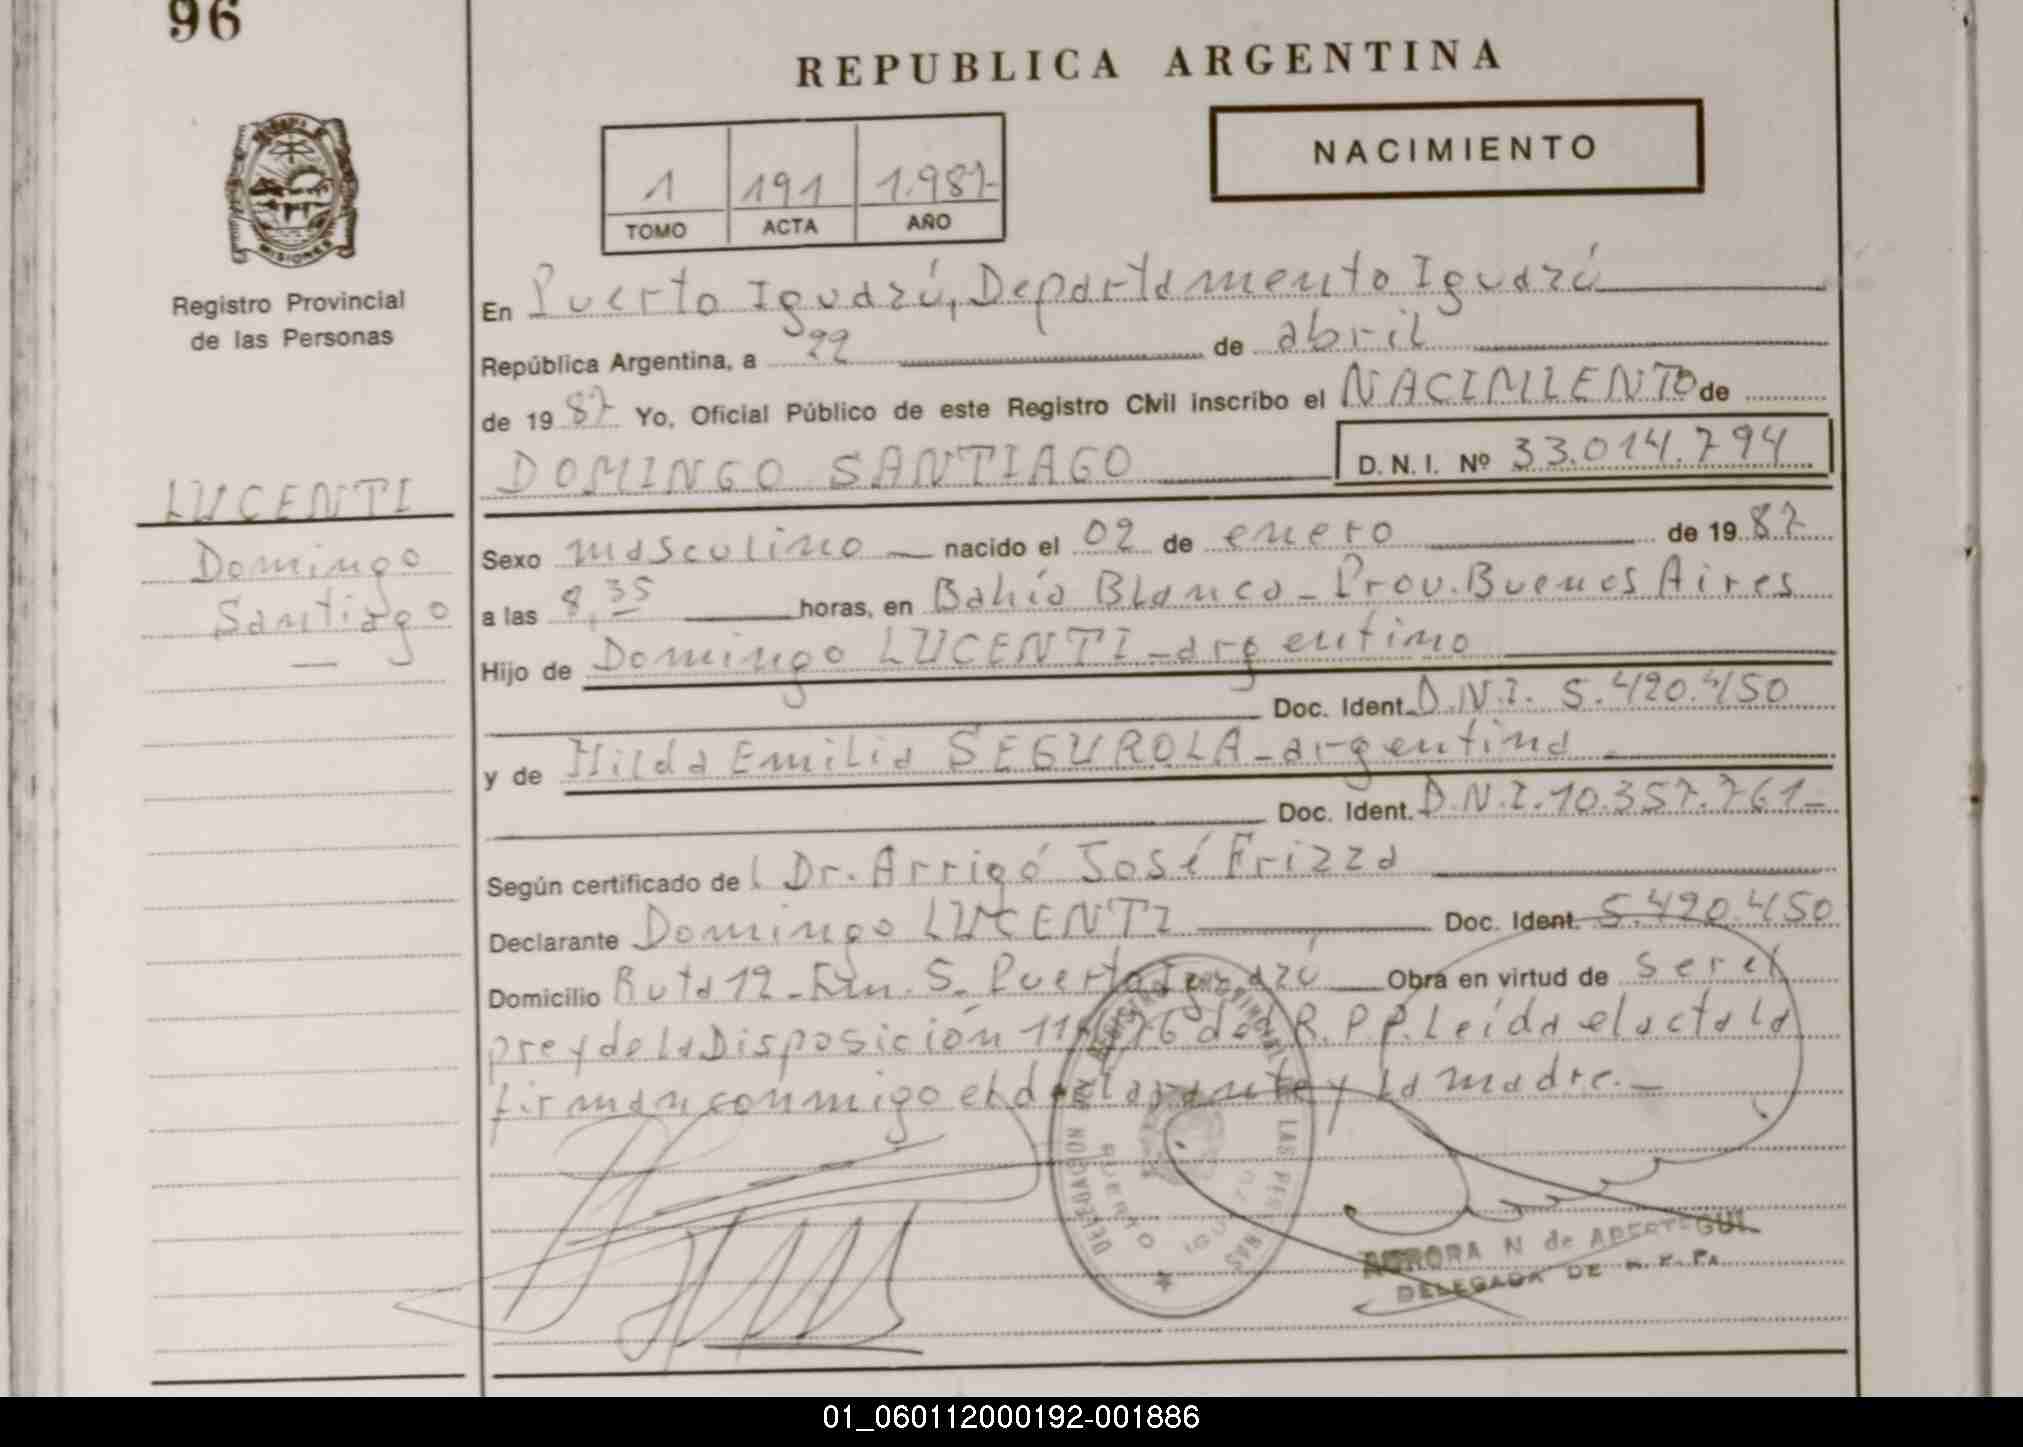 96
REPUBLICA ARGENTINA
NACIMIENTO
1 191 1.987
TOMO ACTA AÑO
MISIONES
Registro Provincial
de las Personas
LUCENTI
Domingo
Santiago
En Puerto Iguazú, Departamento Iguazú
República Argentina, a 22 de abril
de 1987 Yo, Oficial Público de este Registro Civil inscribo el NACIMIENTO de
DOMINGO SANTIAGO D. N. I. Nº 33.014.794
Sexo masculino nacido el 02 de enero de 1987
a las 8,35 horas, en Bahía Blanca - Prov. Buenos Aires
Hijo de Domingo LUCENTI - argentino
Doc. Ident. D.N.I. 5.420.450
y de Hilda Emilia SEGUROLA - argentina
Doc. Ident. D.N.I. 10.357.761
Según certificado del Dr. Arrigó José Frizza
Declarante Domingo LUCENTI Doc. Ident. 5.420.450
Domicilio Ruta 12 - Km. 5 - Puerto Iguazú Obra en virtud de ser el
pre y de la Disposición del R.P.P. Leída el acta la
firman conmigo el declarante y la madre.
DELEGACION
REGISTRO PROVINCIAL DE LAS PERSONAS
PUERTO IGUAZU
AURORA N de ABERTEGUI
DELEGADA DE
01_060112000192-001886